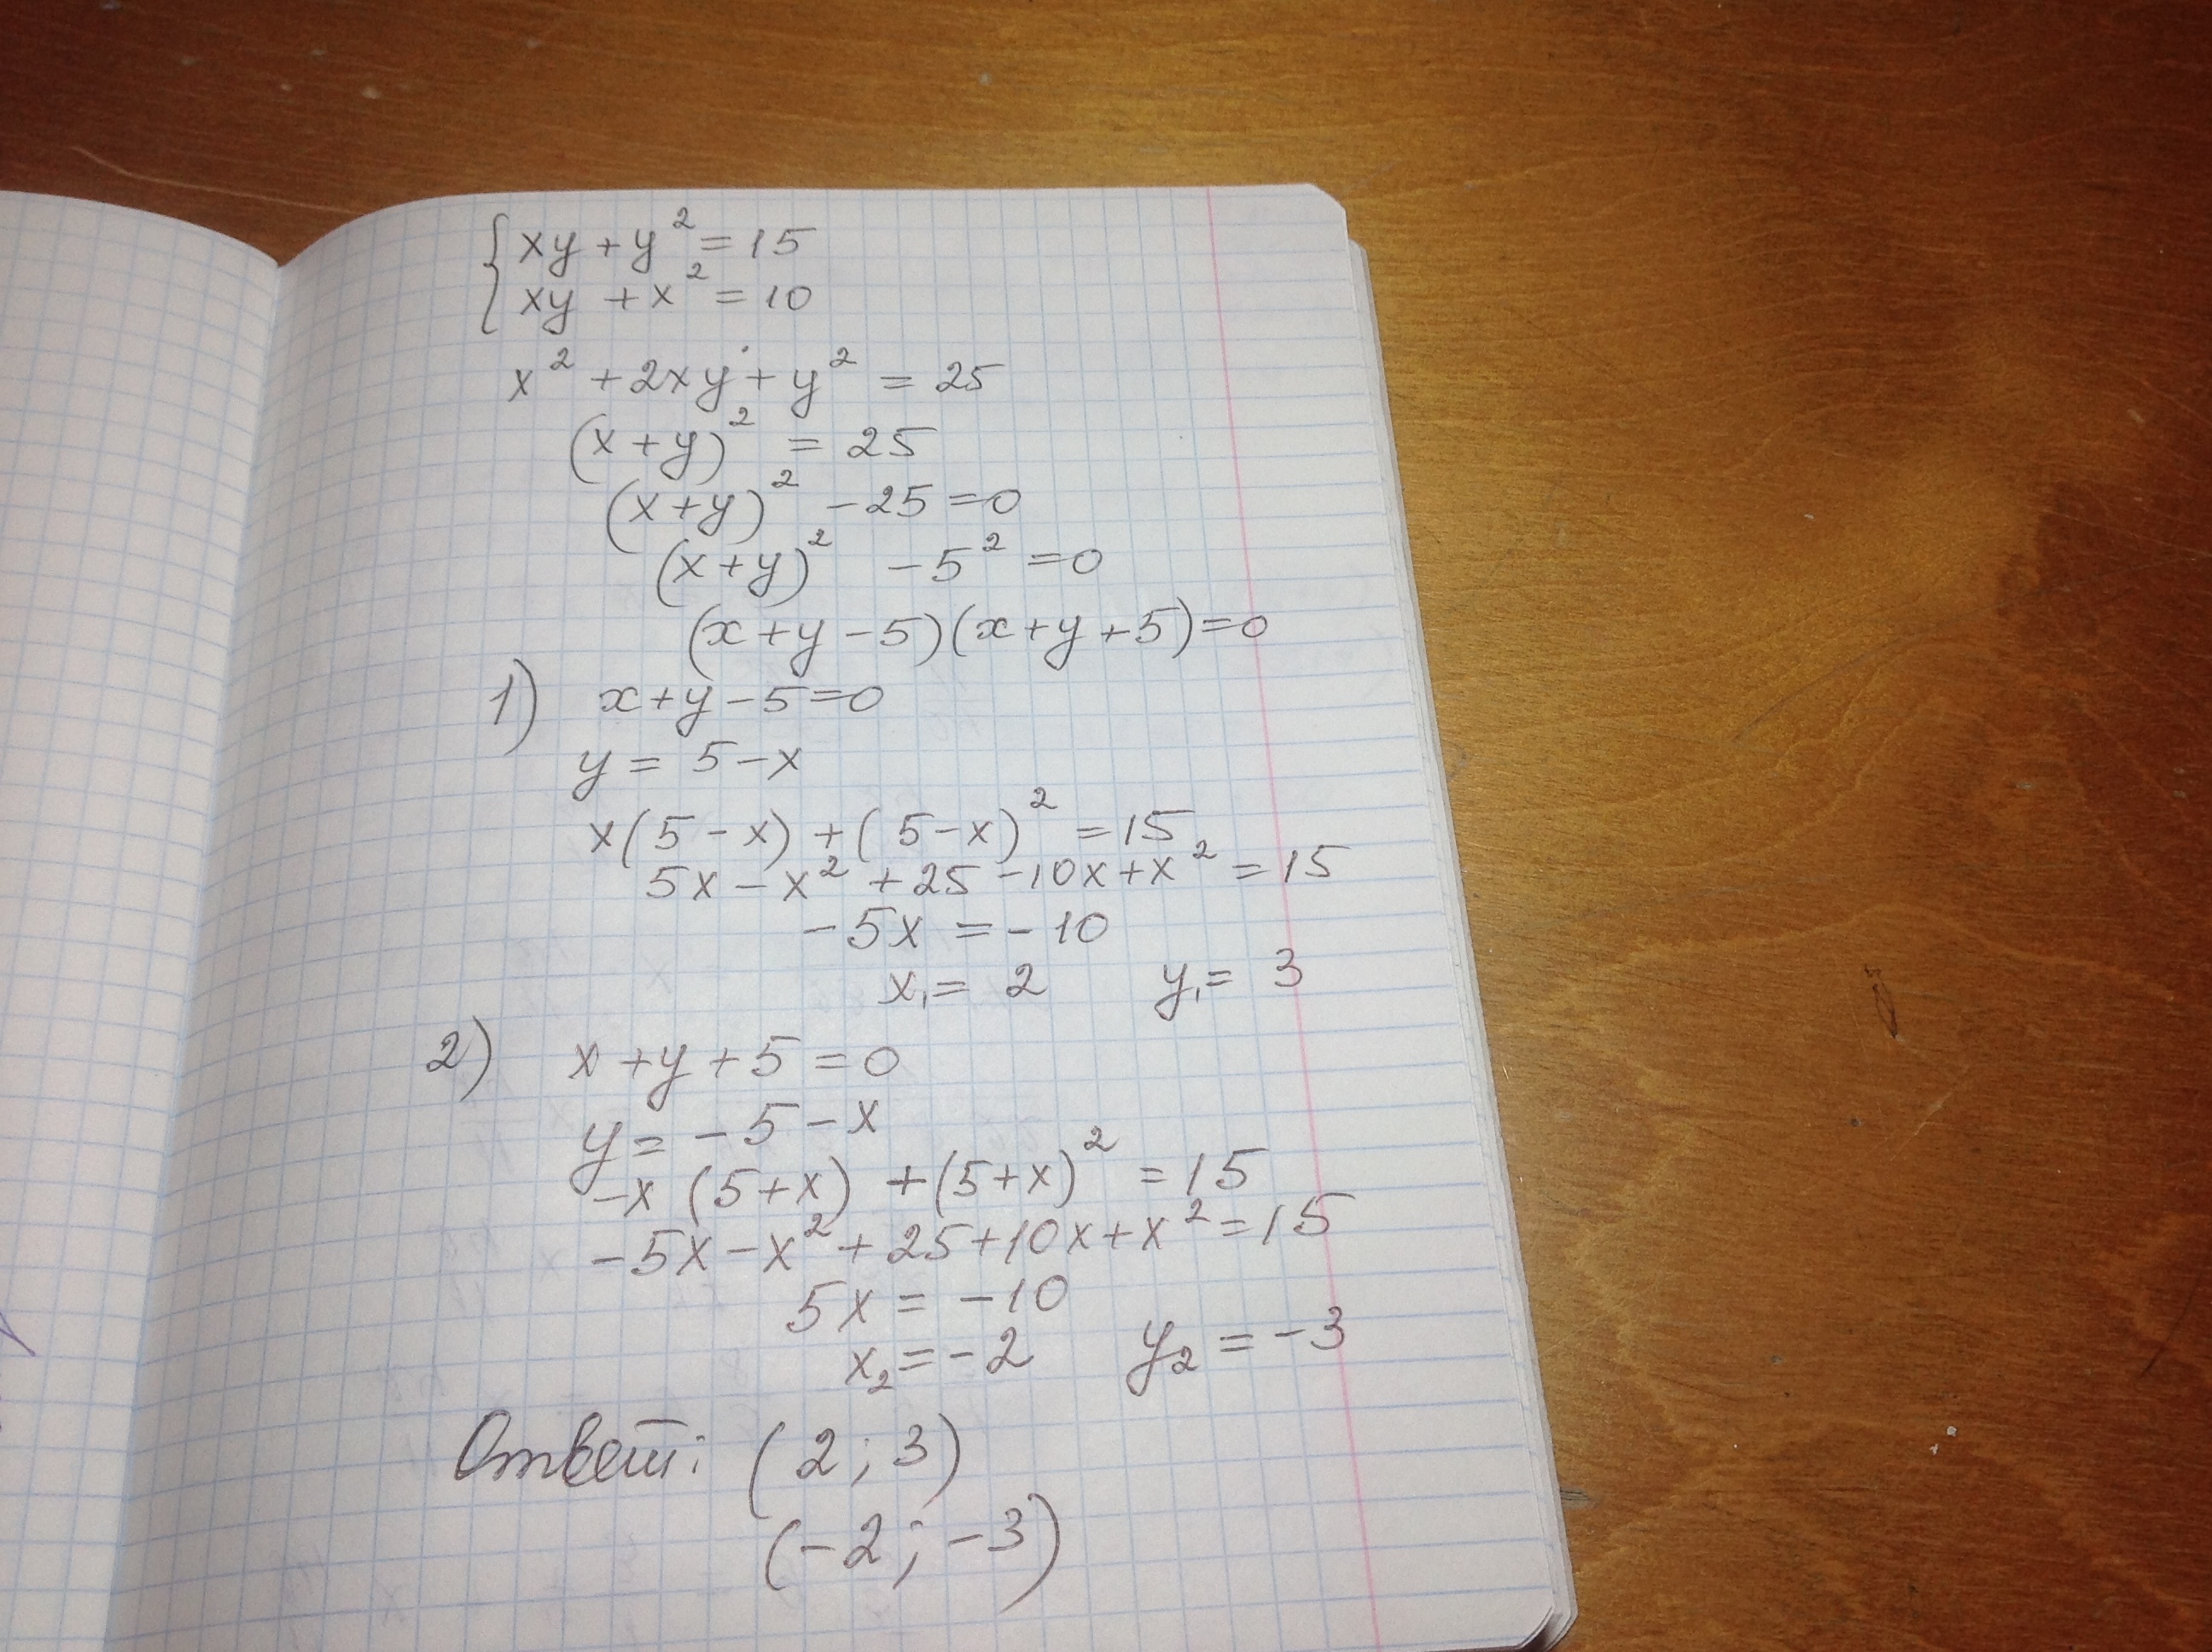 { xy + y² = 15
xy + x² = 10
x² + 2xy + y² = 25
(x+y)² = 25
(x+y)² - 25 = 0
(x+y)² - 5² = 0
(x+y-5)(x+y+5)=0
1) x+y-5=0
y = 5-x
x(5-x) + (5-x)² = 15
5x - x² + 25 - 10x + x² = 15
-5x = -10
x₁ = 2 y₁ = 3
2) x+y+5=0
y = -5-x
-x(5+x) + (5+x)² = 15
-5x - x² + 25 + 10x + x² = 15
5x = -10
x₂ = -2 y₂ = -3
Ответ: (2; 3)
(-2; -3)